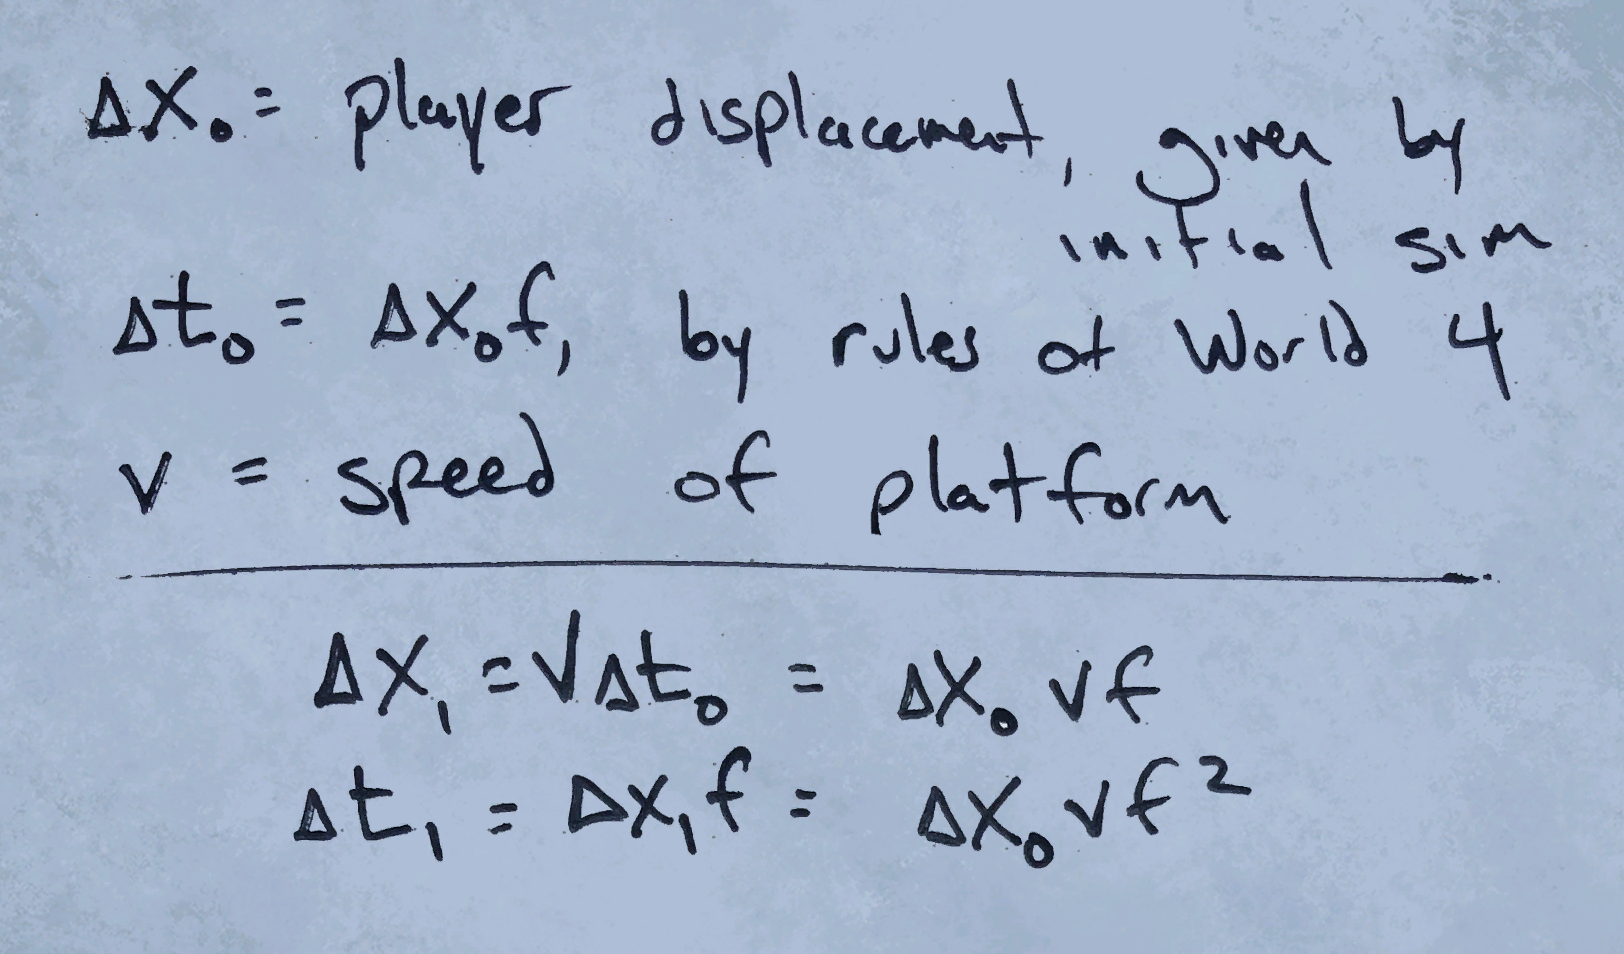 Δx₀ = player displacement, given by
initial sim
Δt₀ = Δx₀f, by rules of World 4
v = speed of platform
Δx₁ = vΔt₀ = Δx₀ vf
Δt₁ = Δx₁f = Δx₀vf²